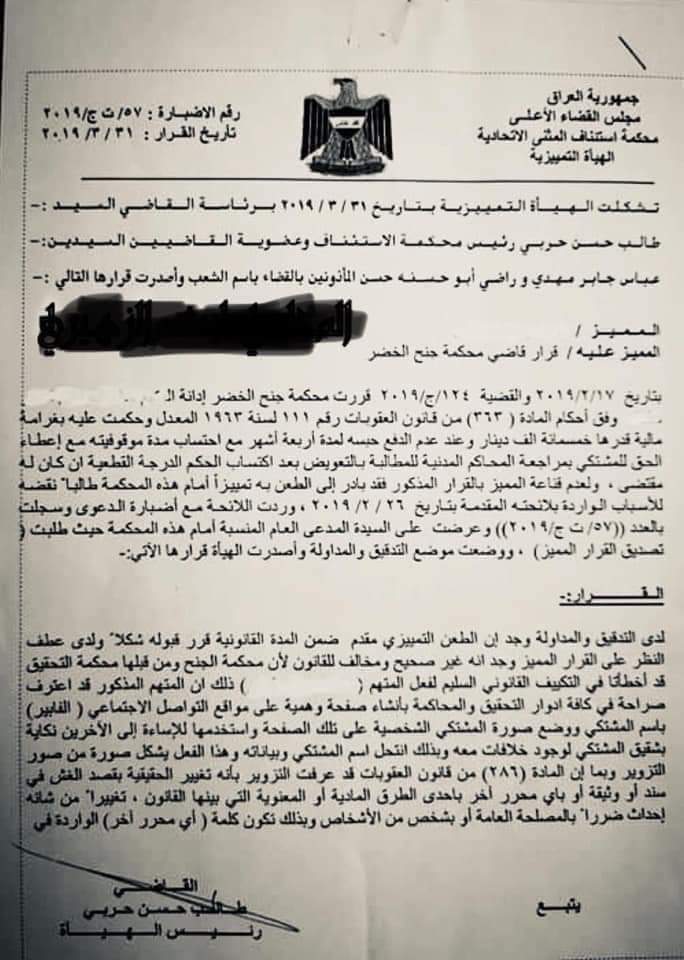 جمهورية العراق
مجلس القضاء الأعلى
محكمة استئناف المثنى الاتحادية
الهيأة التمييزية
رقم الاضبارة : ٥٧/ ت ج/٢٠١٩
تأريخ القرار : ٣١ /٣ /٢٠١٩
تشكلت الهيأة التمييزية بتاريخ ٣١ /٣ / ٢٠١٩ برئاسة القاضي السيد :-
طالب حسن حربي رئيس محكمة الاستئناف وعضوية القاضيين السيدين:-
عباس جابر مهدي و راضي أبو حسنه حسن المأذونين بالقضاء باسم الشعب وأصدرت قرارها التالي :-
المميز /
المميز عليه / قرار قاضي محكمة جنح الخضر
بتاريخ ٢٠١٩/٢/١٧ والقضية ١٢٤/ج/٢٠١٩ قررت محكمة جنح الخضر إدانة الـ
وفق أحكام المادة ( ٣٦٣) من قانون العقوبات رقم ١١١ لسنة ١٩٦٣ المعدل وحكمت عليه بغرامة
مالية قدرها خمسمائة الف دينار وعند عدم الدفع حبسه لمدة أربعة أشهر مع احتساب مدة موقوفيته مع إعطاء
الحق للمشتكي بمراجعة المحاكم المدنية للمطالبة بالتعويض بعد اكتساب الحكم الدرجة القطعية ان كان له
مقتضى ، ولعدم قناعة المميز بالقرار المذكور فقد بادر إلى الطعن به تمييزاً أمام هذه المحكمة طالباً نقضه
للأسباب الواردة بلائحته المقدمة بتاريخ ٢٦ /٢ /٢٠١٩ ، وردت اللائحة مع أضبارة الدعوى وسجلت
بالعدد ((٥٧/ ت ج/٢٠١٩)) وعرضت على السيدة المدعي العام المنسبة أمام هذه المحكمة حيث طلبت (
تصديق القرار المميز) ، ووضعت موضع التدقيق والمداولة وأصدرت الهيأة قرارها الآتي:-
القـــرار:-
لدى التدقيق والمداولة وجد إن الطعن التمييزي مقدم ضمن المدة القانونية قرر قبوله شكلاً ولدى عطف
النظر على القرار المميز وجد انه غير صحيح ومخالف للقانون لأن محكمة الجنح ومن قبلها محكمة التحقيق
قد أخطأتا في التكييف القانوني السليم لفعل المتهم ( ) ذلك ان المتهم المذكور قد اعترف
صراحة في كافة ادوار التحقيق والمحاكمة بأنشاء صفحة وهمية على مواقع التواصل الاجتماعي ( الفايبر)
باسم المشتكي ووضع صورة المشتكي الشخصية على تلك الصفحة واستخدمها للإساءة إلى الأخرين نكاية
بشقيق المشتكي لوجود خلافات معه وبذلك انتحل اسم المشتكي وبياناته وهذا الفعل يشكل صورة من صور
التزوير وبما إن المادة (٢٨٦) من قانون العقوبات قد عرفت التزوير بأنه تغيير الحقيقية بقصد الغش في
سند أو وثيقة أو باي محرر أخر باحدى الطرق المادية أو المعنوية التي بينها القانون ، تغييراً من شانه
إحداث ضرراً بالمصلحة العامة أو بشخص من الأشخاص وبذلك تكون كلمة ( أي محرر أخر) الواردة في
يتبع
القاضي
طالب حسن حربي
رئيس الهيأة